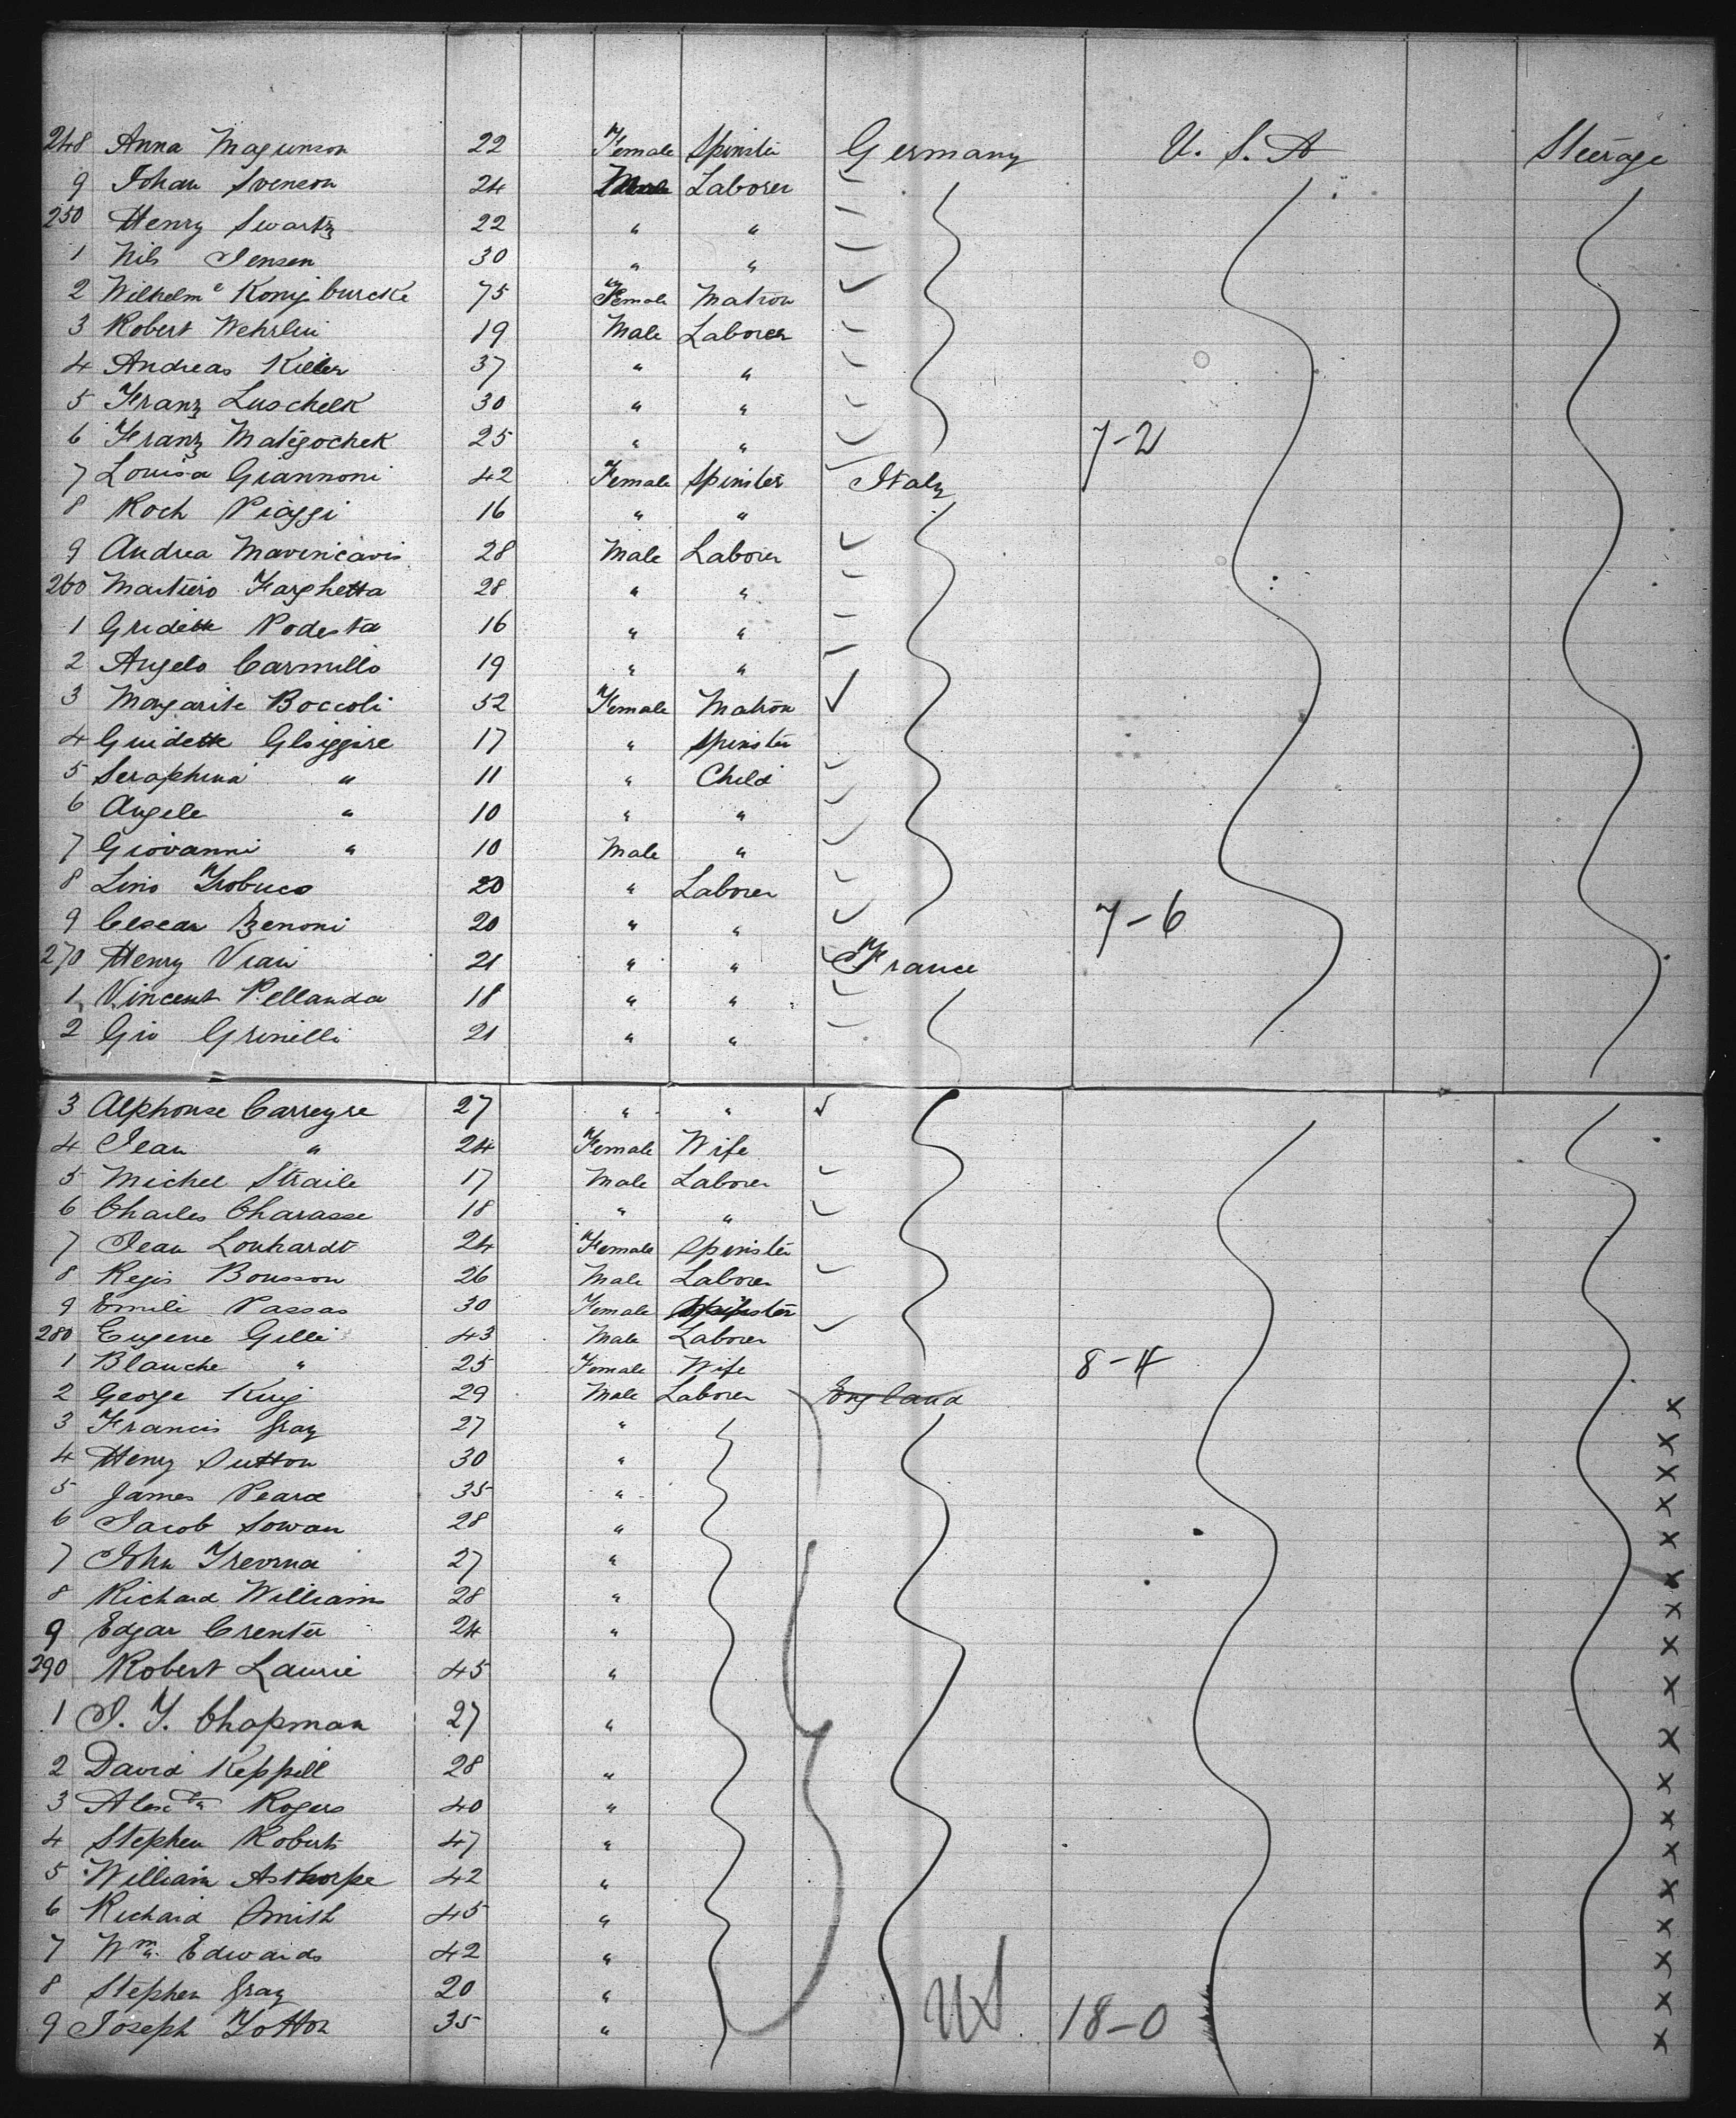 248 Anna Magunson 22 Female Spinster Germany U. S. A Steerage
9 Johan Svenson 24 Male Laborer
250 Henry Swartz 22 " "
1 Nils Jensen 30 " "
2 Wilhelm e Konigburcke 75 Female Matron
3 Robert Wehrlin 19 Male Laborer
4 Andreas Killer 37 " "
5 Franz Luschelk 30 " "
6 Franz Matigochek 25 " " 7-2
7 Louisa Giannoni 42 Female Spinster Italy
8 Roch Piaggi 16 " "
9 Andrea Mavericavis 28 Male Laborer
260 Martiero Farghetta 28 " "
1 Gridette Podesta 16 " "
2 Angelo Carmillo 19 " "
3 Margarite Boccoli 52 Female Matron
4 Guidette Gloiggire 17 " Spinster
5 Seraphina " 11 " Child
6 Angele " 10 " "
7 Giovanni " 10 Male "
8 Lino Frobuco 20 " Laborer
9 Cesear Zenoni 20 " " 7-6
270 Henry Vian 21 " " France
1 Vincent Pellanda 18 " "
2 Gio Grinelli 21 " "
3 Alphonse Carreyre 27 " "
4 Jean " 24 Female Wife
5 Michel Straile 17 Male Laborer
6 Charles Charasse 18 " "
7 Jean Lonhardt 24 Female Spinster
8 Regis Bousson 26 Male Laborer
9 Emile Passas 30 Female Spinster
280 Eugene Gilli 43 Male Laborer
1 Blanche " 25 Female Wife 8-4
2 George King 29 Male Laborer England x
3 Francis Gray 27 " x
4 Henry Sutton 30 " x
5 James Pearce 35 " x
6 Jacob Sowan 28 " x
7 John Trevrna 27 " x
8 Richard Williams 28 " x
9 Edgar Crenter 24 " x
290 Robert Laurie 45 " x
1 J. T. Chapman 27 " x
2 David Keppill 28 " x
3 Alexdr Rogers 40 " x
4 Stephen Roberts 47 " x
5 William Asthorpe 42 " x
6 Richard Smith 45 " x
7 Wm Edwards 42 " x
8 Stephen Gray 20 " x
9 Joseph Totton 35 " US 18-0 x